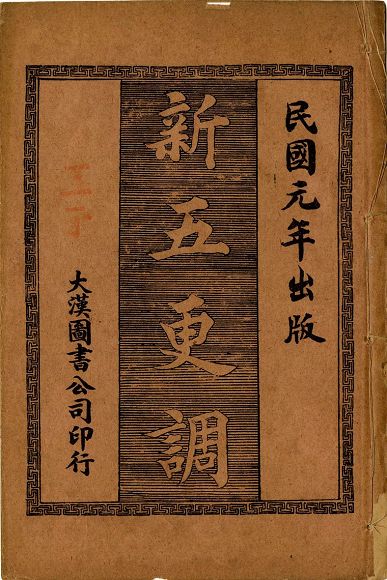 民國元年出版
新五更調
大漢圖書公司印行